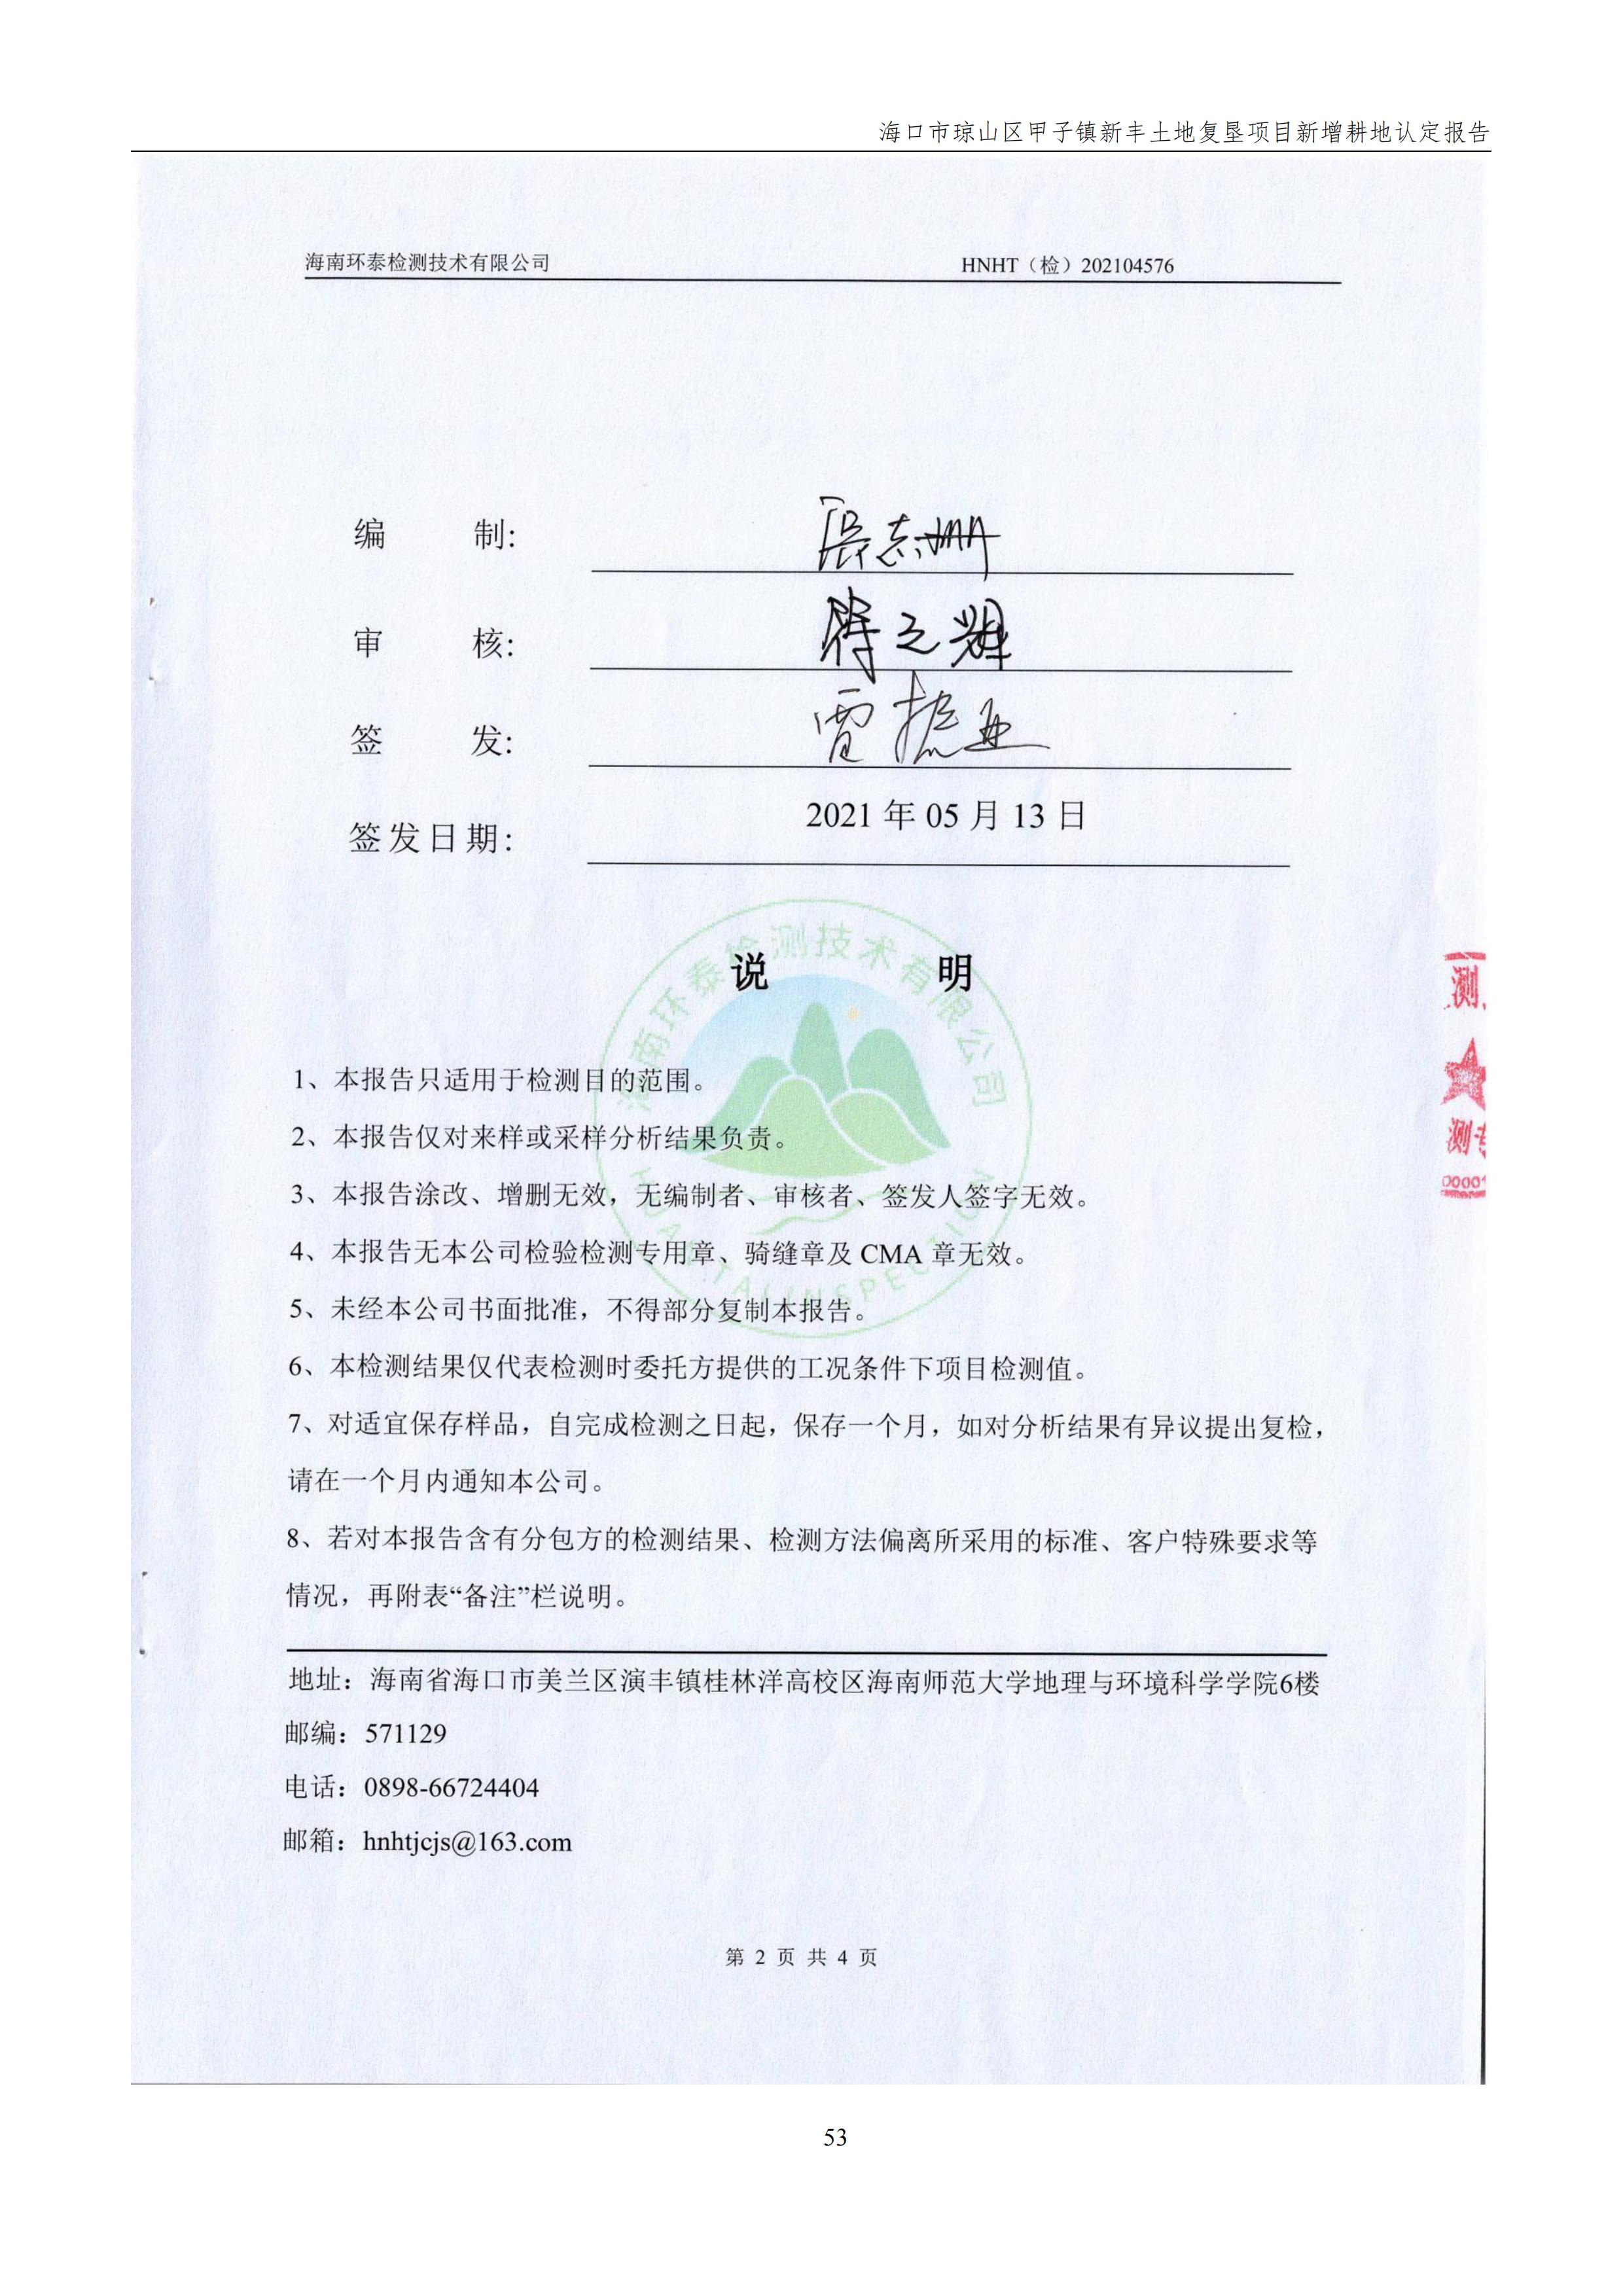 海口市琼山区甲子镇新丰土地复垦项目新增耕地认定报告
海南环泰检测技术有限公司 HNHT（检）202104576
编 制:
审 核:
签 发: 雷振亚
签发日期: 2021 年 05 月 13 日
海南环泰检测技术有限公司
说 明
测
1、本报告只适用于检测目的范围。
2、本报告仅对来样或采样分析结果负责。
测专
3、本报告涂改、增删无效，无编制者、审核者、签发人签字无效。
00001
4、本报告无本公司检验检测专用章、骑缝章及 CMA 章无效。
HUANTAI INSPECTION
5、未经本公司书面批准，不得部分复制本报告。
6、本检测结果仅代表检测时委托方提供的工况条件下项目检测值。
7、对适宜保存样品，自完成检测之日起，保存一个月，如对分析结果有异议提出复检，
请在一个月内通知本公司。
8、若对本报告含有分包方的检测结果、检测方法偏离所采用的标准、客户特殊要求等
情况，再附表“备注”栏说明。
地址：海南省海口市美兰区演丰镇桂林洋高校区海南师范大学地理与环境科学学院6楼
邮编：571129
电话：0898-66724404
邮箱：hnhtjcjs@163.com
第 2 页 共 4 页
53